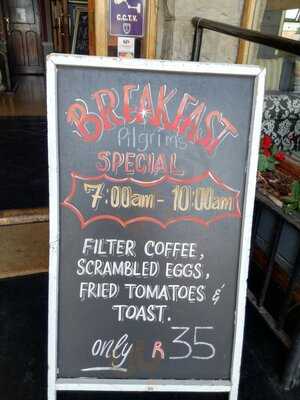 C.C.T.V.
BREAKFAST
Pilgrims
SPECIAL
7:00am - 10:00am
FILTER COFFEE,
SCRAMBLED EGGS,
FRIED TOMATOES &
TOAST.
only R 35